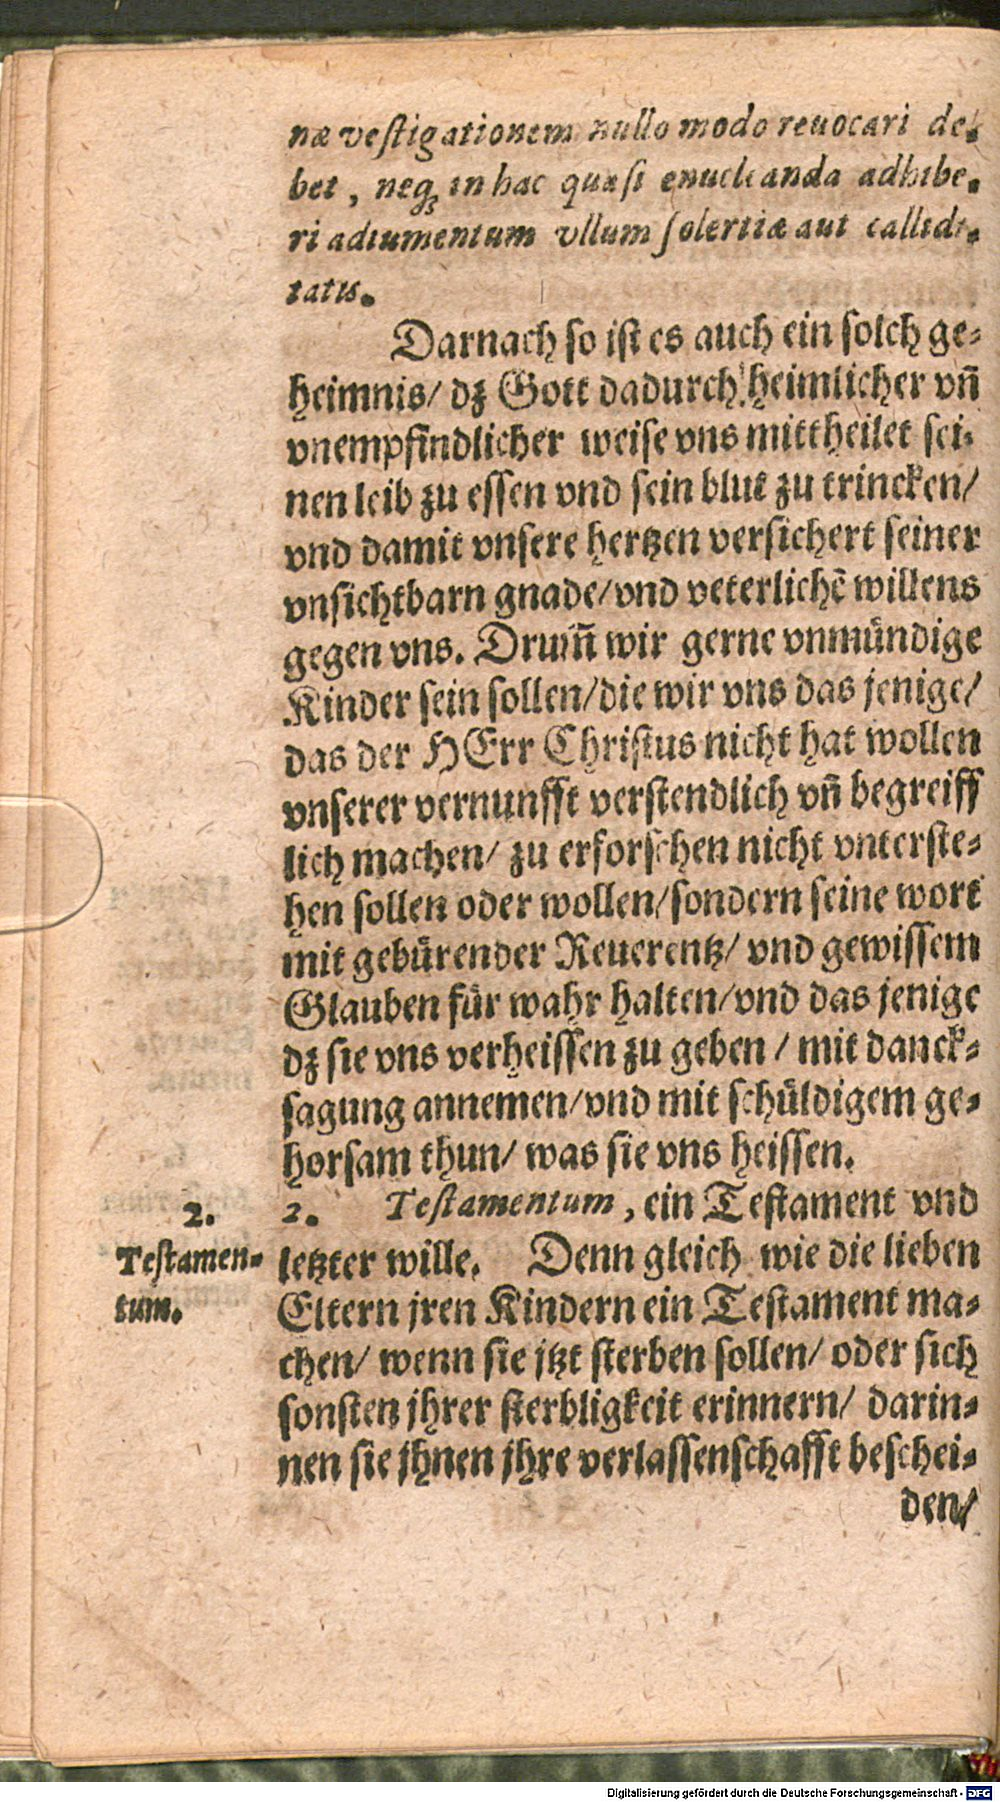 næ vestigationem nullo modo reuocari de-
bet, neq; in hac quasi enucleanda adhibe-
ri adiumentum vllum solertiæ aut callidi-
tatis.
Darnach so ist es auch ein solch ge-
heimnis/ dz Gott dadurch heimlicher vn̄
vnempfindlicher weise vns mittheilet sei-
nen leib zu essen vnd sein blut zu trincken/
vnd damit vnsere hertzen versichert seiner
vnsichtbarn gnade/vnd veterlichē willens
gegen vns. Drum̄ wir gerne vnmündige
Kinder sein sollen/die wir vns das jenige/
das der HErr Christus nicht hat wollen
vnserer vernunfft verstendlich vn̄ begreiff
lich machen/ zu erforschen nicht vnterste-
hen sollen oder wollen/sondern seine wort
mit gebürender Reuerentz/ vnd gewissem
Glauben für wahr halten/vnd das jenige
dz sie vns verheissen zu geben / mit danck-
sagung annemen/vnd mit schüldigem ge-
horsam thun/ was sie vns heissen.
2. Testamentum, ein Testament vnd
letzter wille. Denn gleich wie die lieben
Eltern jren Kindern ein Testament ma-
chen/ wenn sie jtzt sterben sollen/ oder sich
sonsten jhrer sterbligkeit erinnern/ darin-
nen sie jhnen jhre verlassenschafft beschei-
den/
2.
Testamen-
tum.
Digitalisierung gefördert durch die Deutsche Forschungsgemeinschaft - DFG